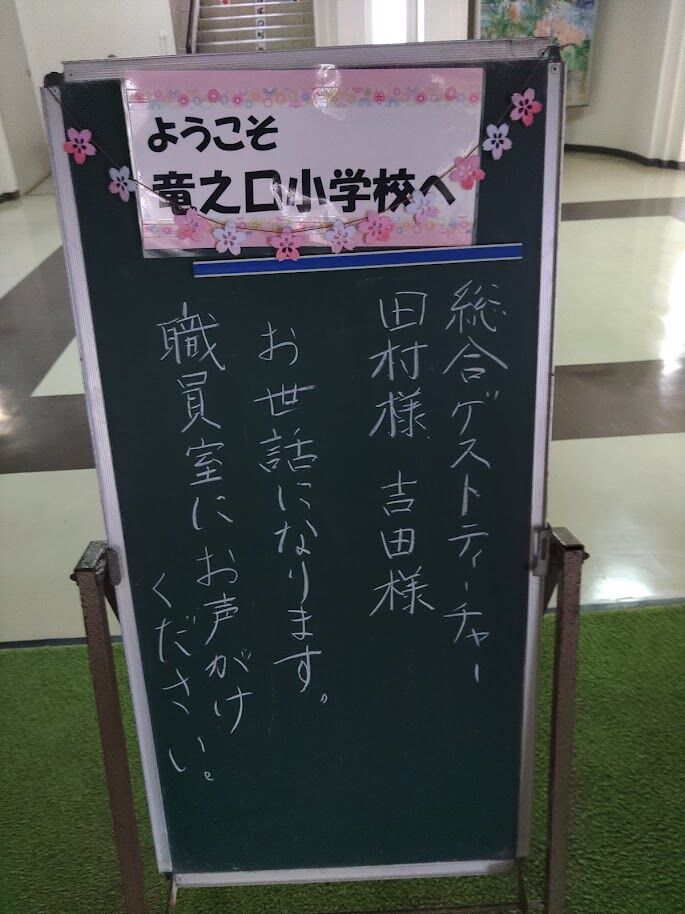 ようこそ
竜之口小学校へ
総合ゲストティーチャー
田村様 吉田様
お世話になります。
職員室にお声がけ
ください。